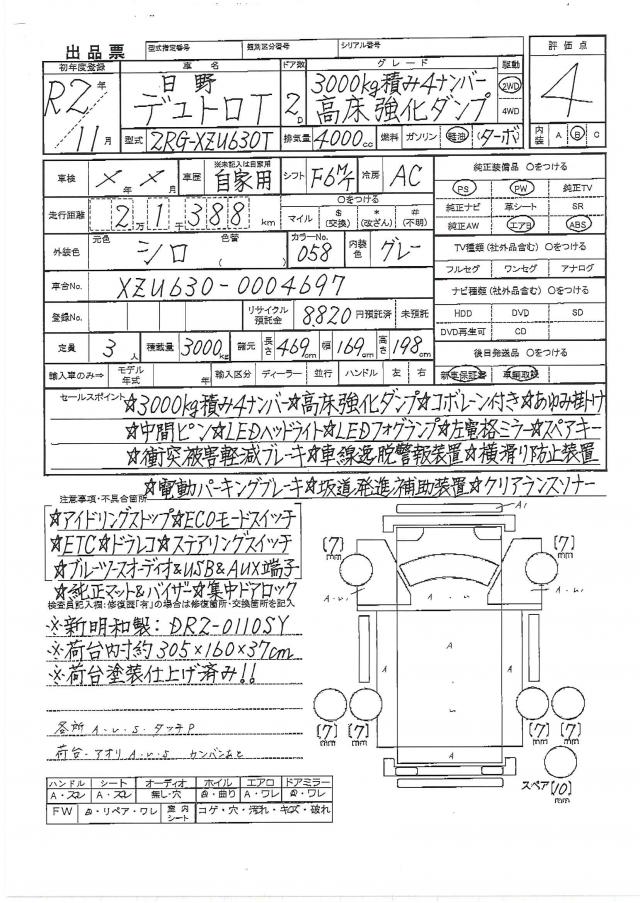 出品票
型式指定番号 類別区分番号 シリアル番号
評価点
4
初年度登録 車名 ドア数 グレード 駆動
R2年/11月
日野
デュトロT
2D
3000kg積み4ナンバー
高床強化ダンプ
2WD
4WD
型式 2RG-XZU630T 排気量 4000cc 燃料 ガソリン 軽油 (ターボ)
内装 A B C
車検 ×年×月 車歴 ※未記入は自家用 自家用 シフト F6M/T 冷房 AC
純正装備品 ○をつける
PS PW 純正TV
走行距離 2万1千388km マイル ○をつける $(交換) *(改ざん) #(不明)
純正ナビ 革シート SR
純正AW エアB ABS
外装色 元色 シロ 色替 カラーNo. 058 内装色 グレー
TV種類(社外品含む) ○をつける
フルセグ ワンセグ アナログ
車台No. XZU630-0004697
ナビ種類(社外品含む) ○をつける
登録No. リサイクル預託金 8,820円預託済 未預託
HDD DVD SD
DVD再生可 CD
定員 3人 積載量 3000kg 諸元 長さ469cm 幅169cm 高さ198cm
後日発送品 ○をつける
輸入車のみ⇒ モデル年式 年 輸入区分 ディーラー 並行 ハンドル 左 右
新車保証書 車輌取説
セールスポイント ☆3000kg積み4ナンバー☆高床強化ダンプ☆コボレーン付き☆あゆみ掛け
☆中間ピン☆LEDヘッドライト☆LEDフォグランプ☆左電格ミラー☆スペアキー
☆衝突被害軽減ブレーキ☆車線逸脱警報装置☆横滑り防止装置
☆電動パーキングブレーキ☆坂道発進補助装置☆クリアランスソナー
注意事項・不具合箇所
☆アイドリングストップ☆ECOモードスイッチ
☆ETC☆ドラレコ☆ステアリングスイッチ
☆ブルーツースオーディオ&USB&AUX端子
☆純正マット&バイザー☆集中ドアロック
検査員記入欄:修復歴「有」の場合は修復箇所・交換箇所を記入
※新明和製:DR2-0110SY
※荷台内寸約305×160×37cm
※荷台塗装仕上げ済み!!
各所 A.U.S.タッチP
荷台・アオリ A.U.S カンバンあと
A1
[7]mm [7]mm
A.U. A.U.
A
A A
A.U.
A
[7]mm [7]mm [7]mm [7]mm
スペア[10]mm
ハンドル シート オーディオ ホイル エアロ ドアミラー
A・スレ A・スレ 無し・穴 曲り A・ワレ ワレ
FW リペア・ワレ 室内シート コゲ・穴・汚れ・キズ・破れ